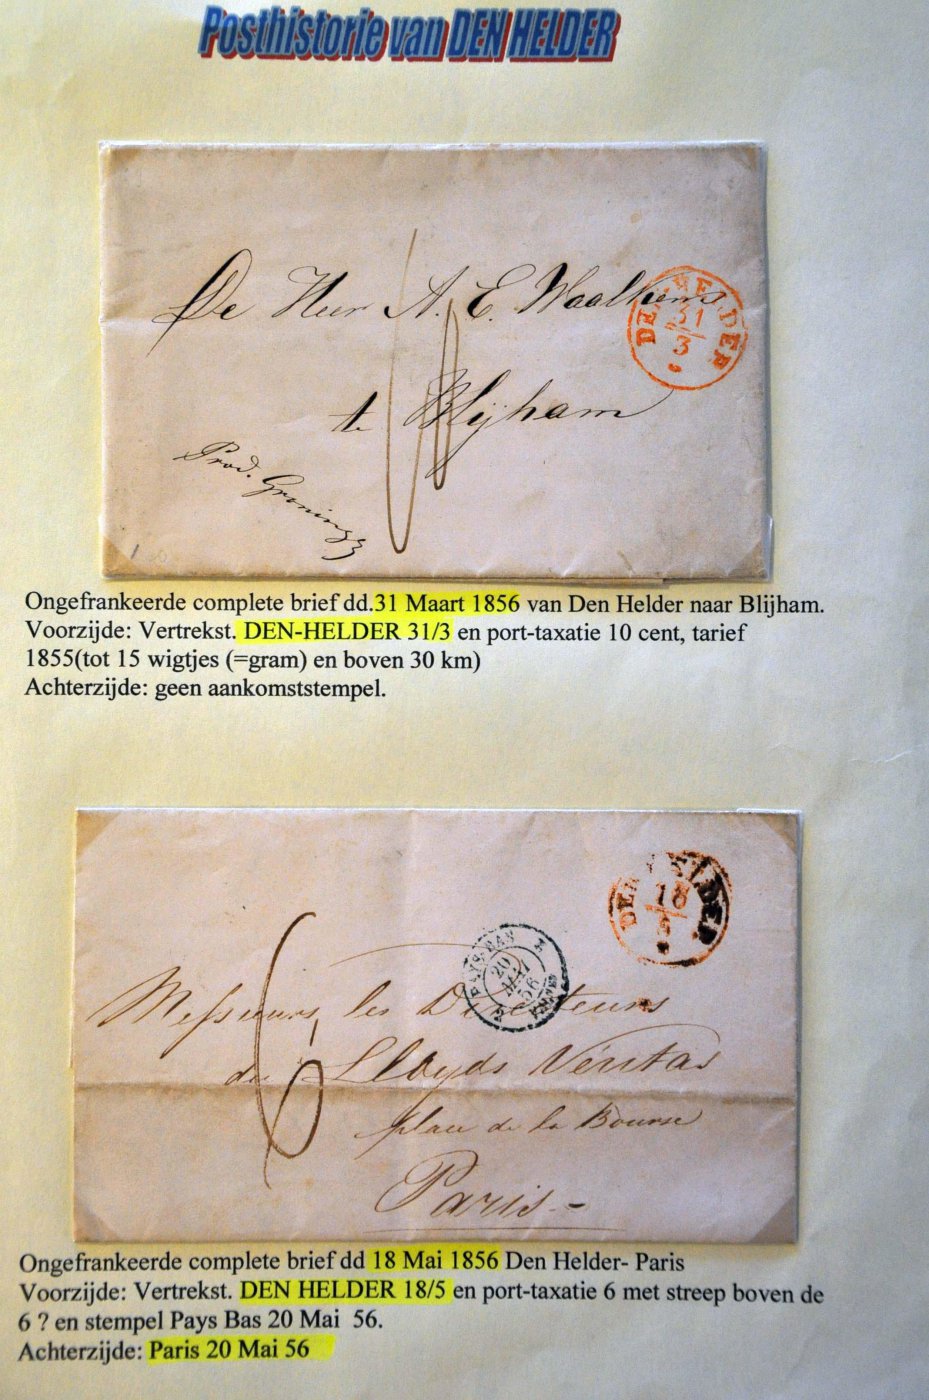 Posthistorie van DEN HELDER
De Heer A. E. Waalkens
te Blijham
Prov. Groningen
10
DEN-HELDER
31
3
Ongefrankeerde complete brief dd.31 Maart 1856 van Den Helder naar Blijham.
Voorzijde: Vertrekst. DEN-HELDER 31/3 en port-taxatie 10 cent, tarief
1855(tot 15 wigtjes (=gram) en boven 30 km)
Achterzijde: geen aankomststempel.
DEN HELDER
18
5
PAYS-BAS
20
MAI
56
6
Messieurs les Directeurs
du Lloyds Véritas
place de la Bourse
Paris
Ongefrankeerde complete brief dd 18 Mai 1856 Den Helder- Paris
Voorzijde: Vertrekst. DEN HELDER 18/5 en port-taxatie 6 met streep boven de
6 ? en stempel Pays Bas 20 Mai 56.
Achterzijde: Paris 20 Mai 56